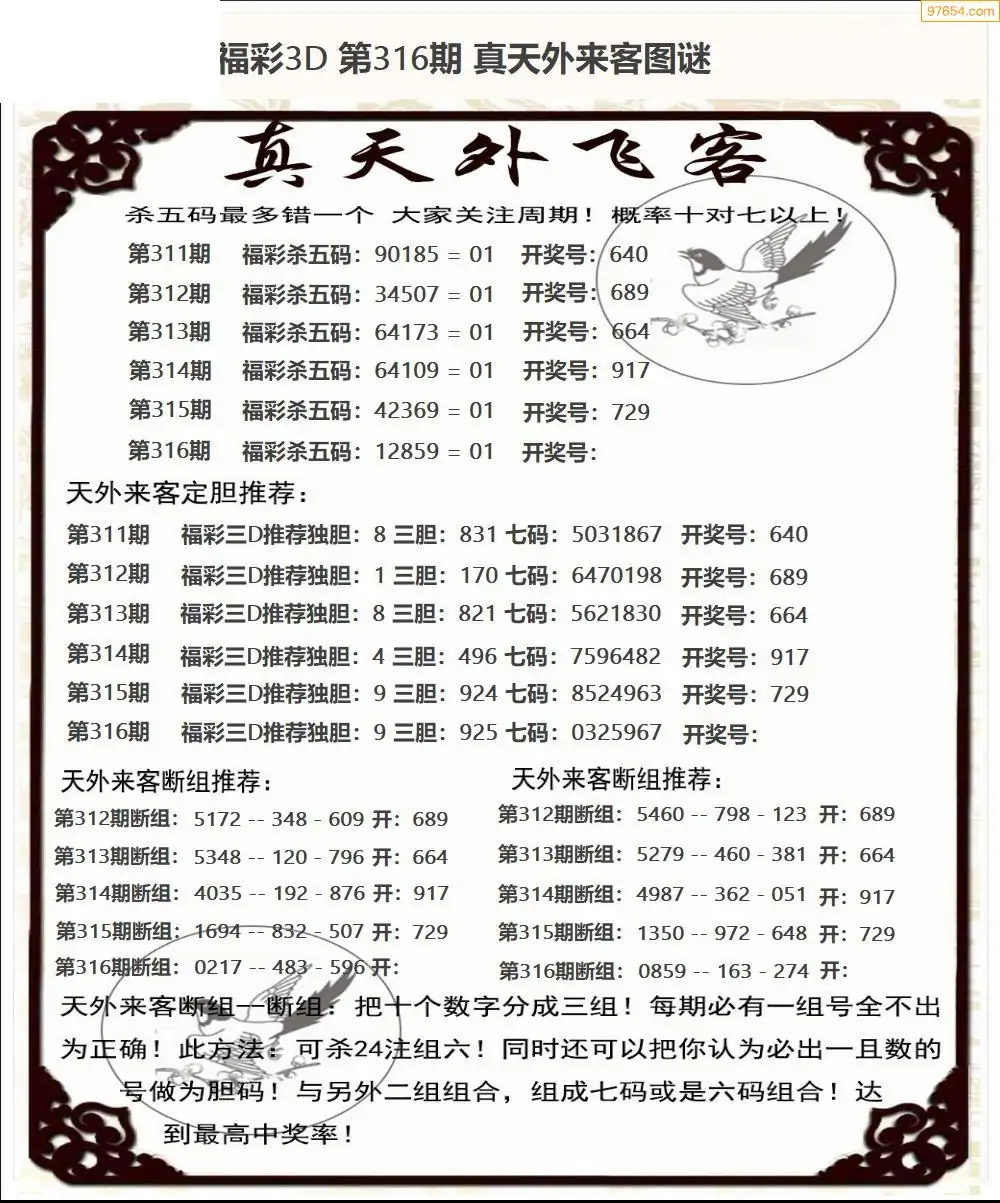 97654.com
福彩3D 第316期 真天外来客图谜
真天外飞客
杀五码最多错一个 大家关注周期！概率十对七以上！
第311期 福彩杀五码：90185 = 01 开奖号：640
第312期 福彩杀五码：34507 = 01 开奖号：689
第313期 福彩杀五码：64173 = 01 开奖号：664
第314期 福彩杀五码：64109 = 01 开奖号：917
第315期 福彩杀五码：42369 = 01 开奖号：729
第316期 福彩杀五码：12859 = 01 开奖号：
天外来客定胆推荐：
第311期 福彩三D推荐独胆：8 三胆：831 七码：5031867 开奖号：640
第312期 福彩三D推荐独胆：1 三胆：170 七码：6470198 开奖号：689
第313期 福彩三D推荐独胆：8 三胆：821 七码：5621830 开奖号：664
第314期 福彩三D推荐独胆：4 三胆：496 七码：7596482 开奖号：917
第315期 福彩三D推荐独胆：9 三胆：924 七码：8524963 开奖号：729
第316期 福彩三D推荐独胆：9 三胆：925 七码：0325967 开奖号：
天外来客断组推荐：
第312期断组：5172 -- 348 - 609 开：689
第313期断组：5348 -- 120 - 796 开：664
第314期断组：4035 -- 192 - 876 开：917
第315期断组：1694 -- 832 - 507 开：729
第316期断组：0217 -- 483 - 596 开：
天外来客断组推荐：
第312期断组：5460 -- 798 - 123 开：689
第313期断组：5279 -- 460 - 381 开：664
第314期断组：4987 -- 362 - 051 开：917
第315期断组：1350 -- 972 - 648 开：729
第316期断组：0859 -- 163 - 274 开：
天外来客断组一断组：把十个数字分成三组！每期必有一组号全不出
为正确！此方法：可杀24注组六！同时还可以把你认为必出一且数的
号做为胆码！与另外二组组合，组成七码或是六码组合！达
到最高中奖率！